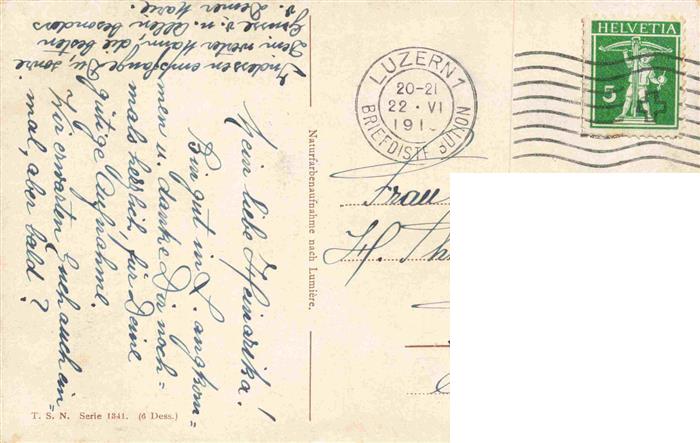 Mein liebe Heinrika!
Bin gut in L. angkom=
men u. danke Dir noch=
mals herzlich für Deine
gütige Aufnahme.
Wir erwarten Euch auch ein=
mal, aber bald?
Indessen empfange Du sowie
Dein werter Mann, die besten
Grüsse v. u. allen besonders
v. Deiner Marie.
T. S. N. Serie 1341. (6 Dess.)
Naturfarbenaufnahme nach Lumière.
LUZERN 1
20-21
22 · VI
191
BRIEFDISTR
HELVETIA
5
Frau
H. Th